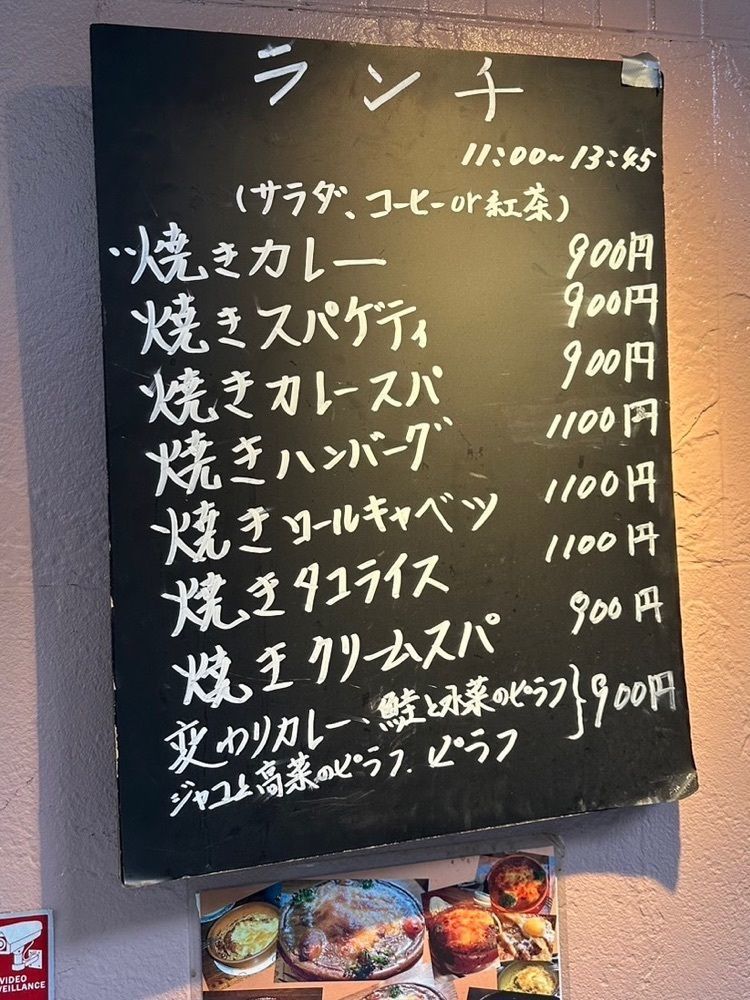 ランチ
11:00~13:45
(サラダ、コーヒーor紅茶)
焼きカレー 900円
焼きスパゲティ 900円
焼きカレースパ 900円
焼きハンバーグ 1100円
焼きロールキャベツ 1100円
焼きタコライス 1100円
焼きクリームスパ 900円
変わりカレー、鮭と水菜のピラフ}900円
ジャコと高菜のピラフ、ピラフ
VIDEO